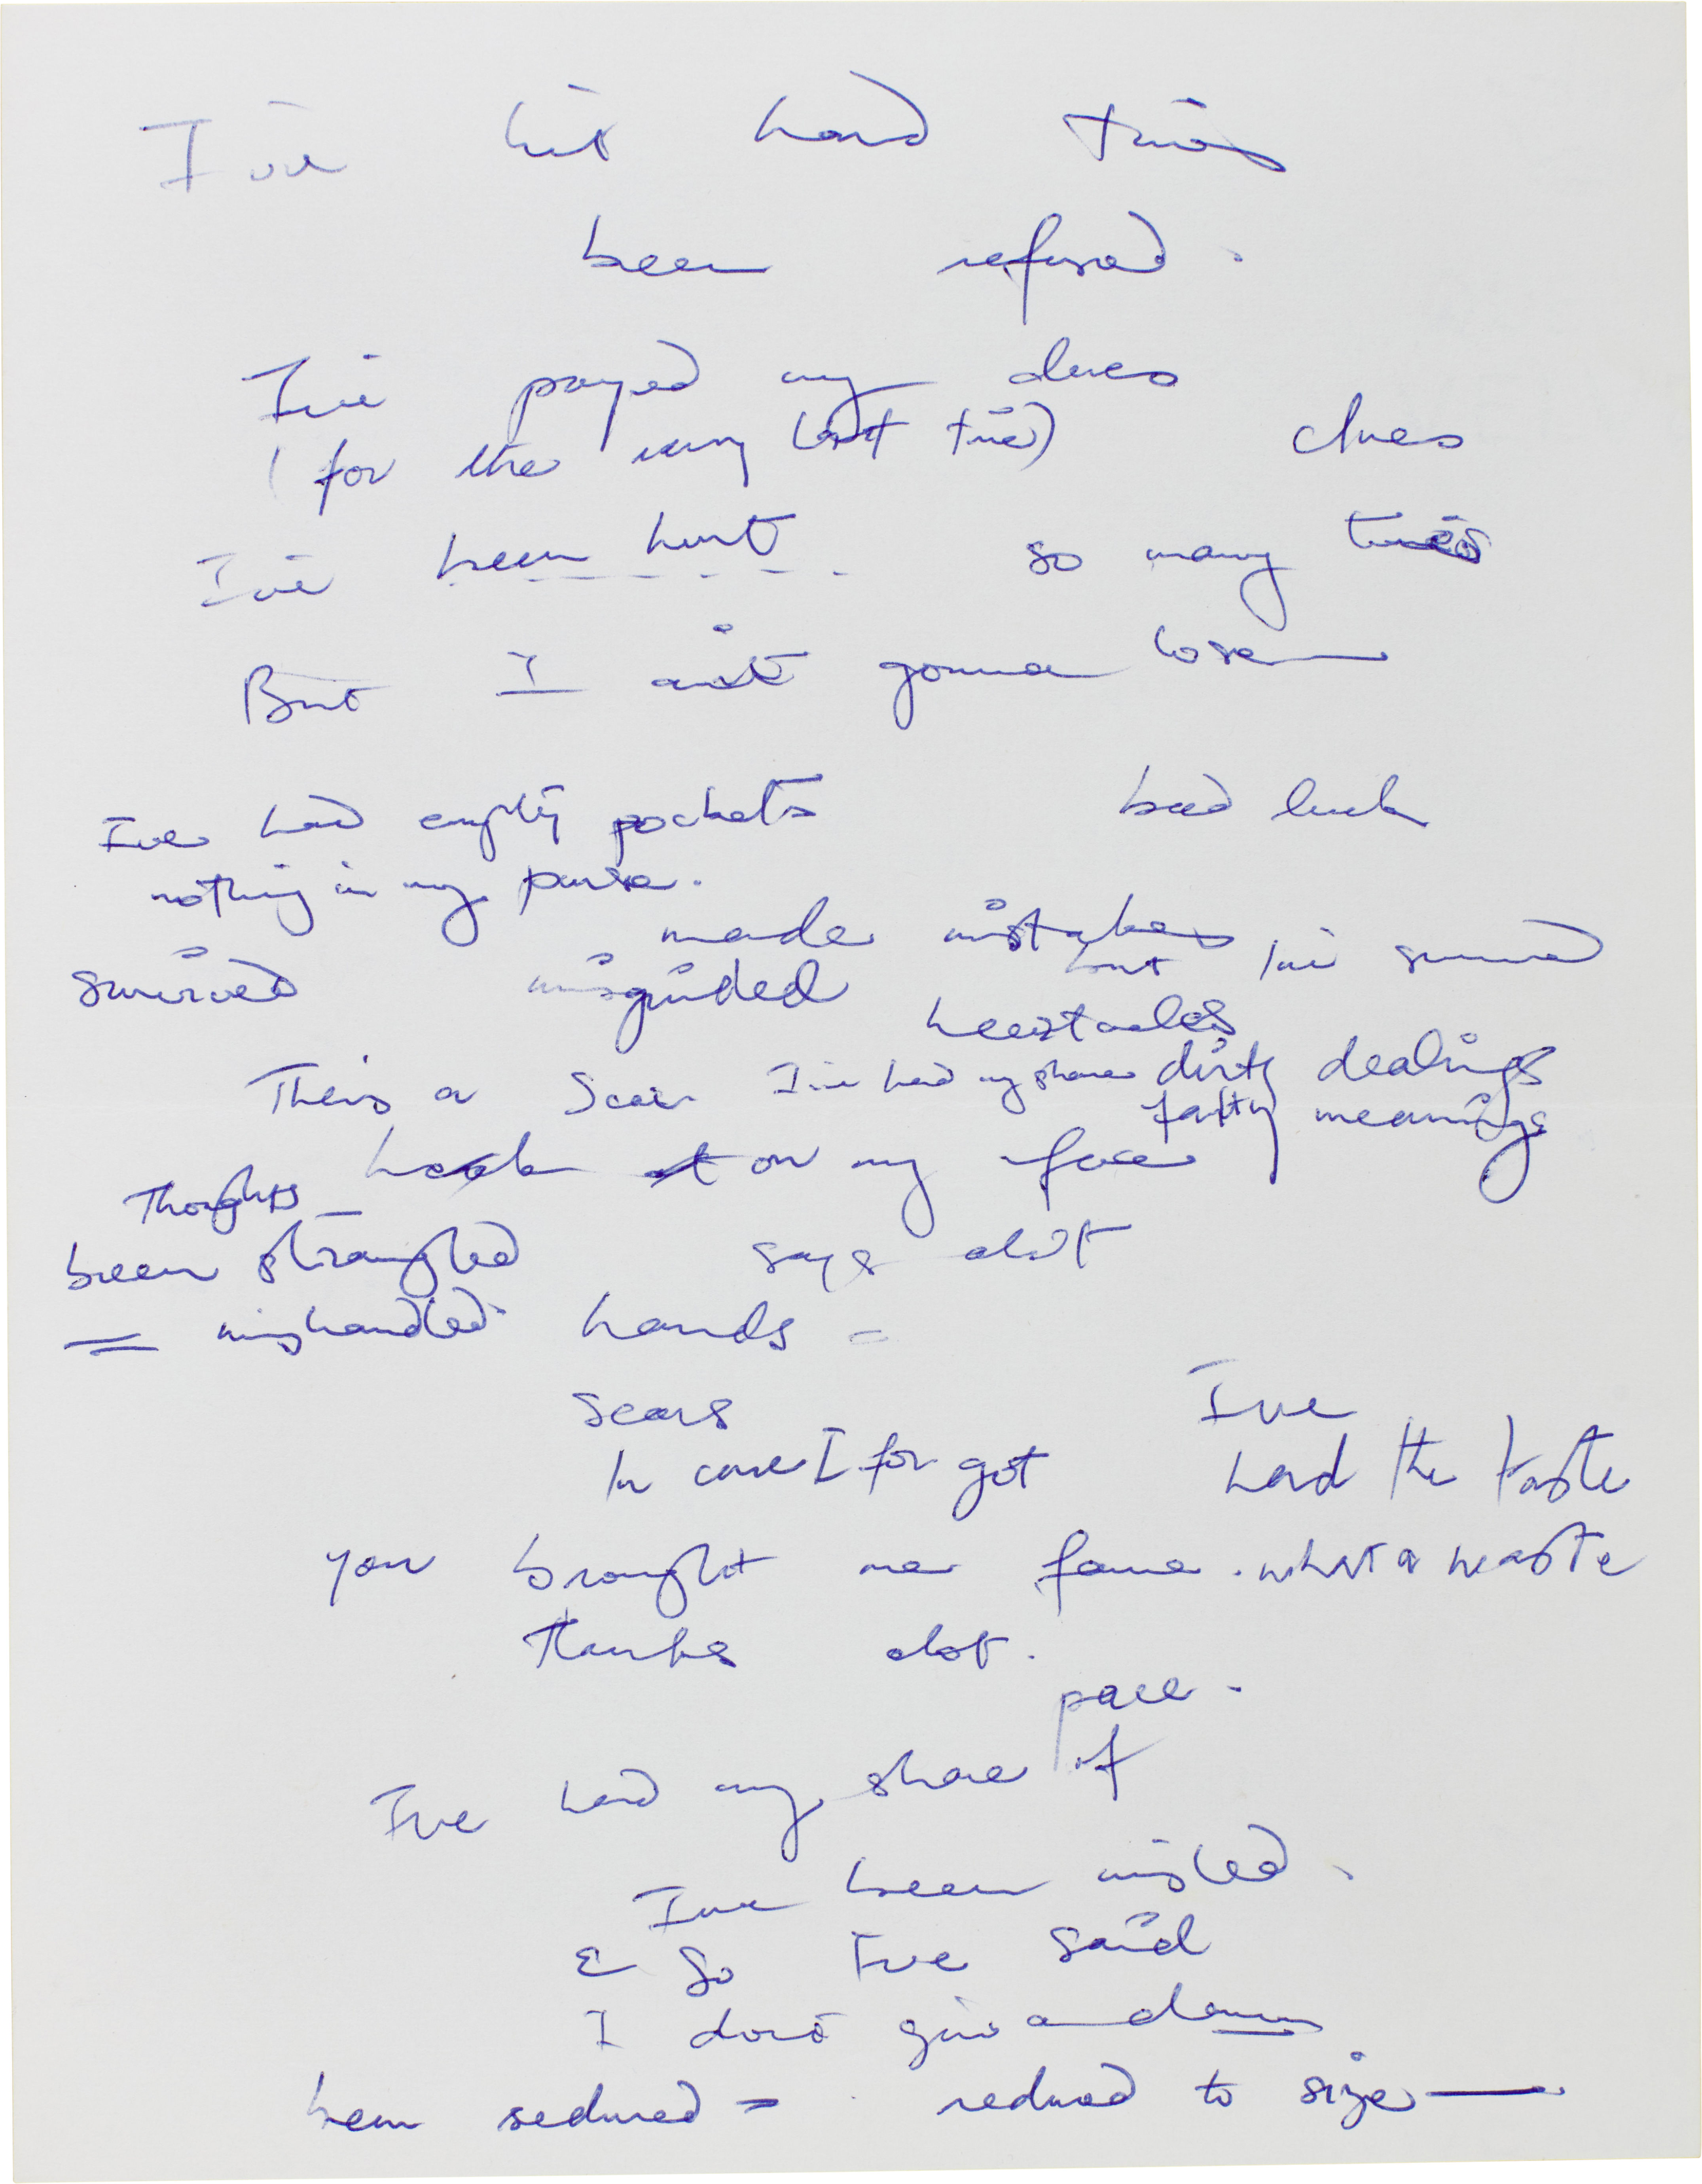 I've hit hard times
been refused.
I've payed my dues
(for the very last time) clues
I've been hurt so many times
But I ain't gonna lose
I've had empty pockets bad luck
nothing in my purse.
made mistakes
survived misguided but I've survived
heartaches
There's a scar I've had my share dirty dealings
faulty meanings
Thoughts on my face
been strangled says alot
mishandled hands
scars I've
In case I forgot had the taste
you brought me fame. what a waste
thanks alot.
pace.
I've had my share of
I've been misled.
& So I've said
I don't give a damn
been seduced = reduced to size —